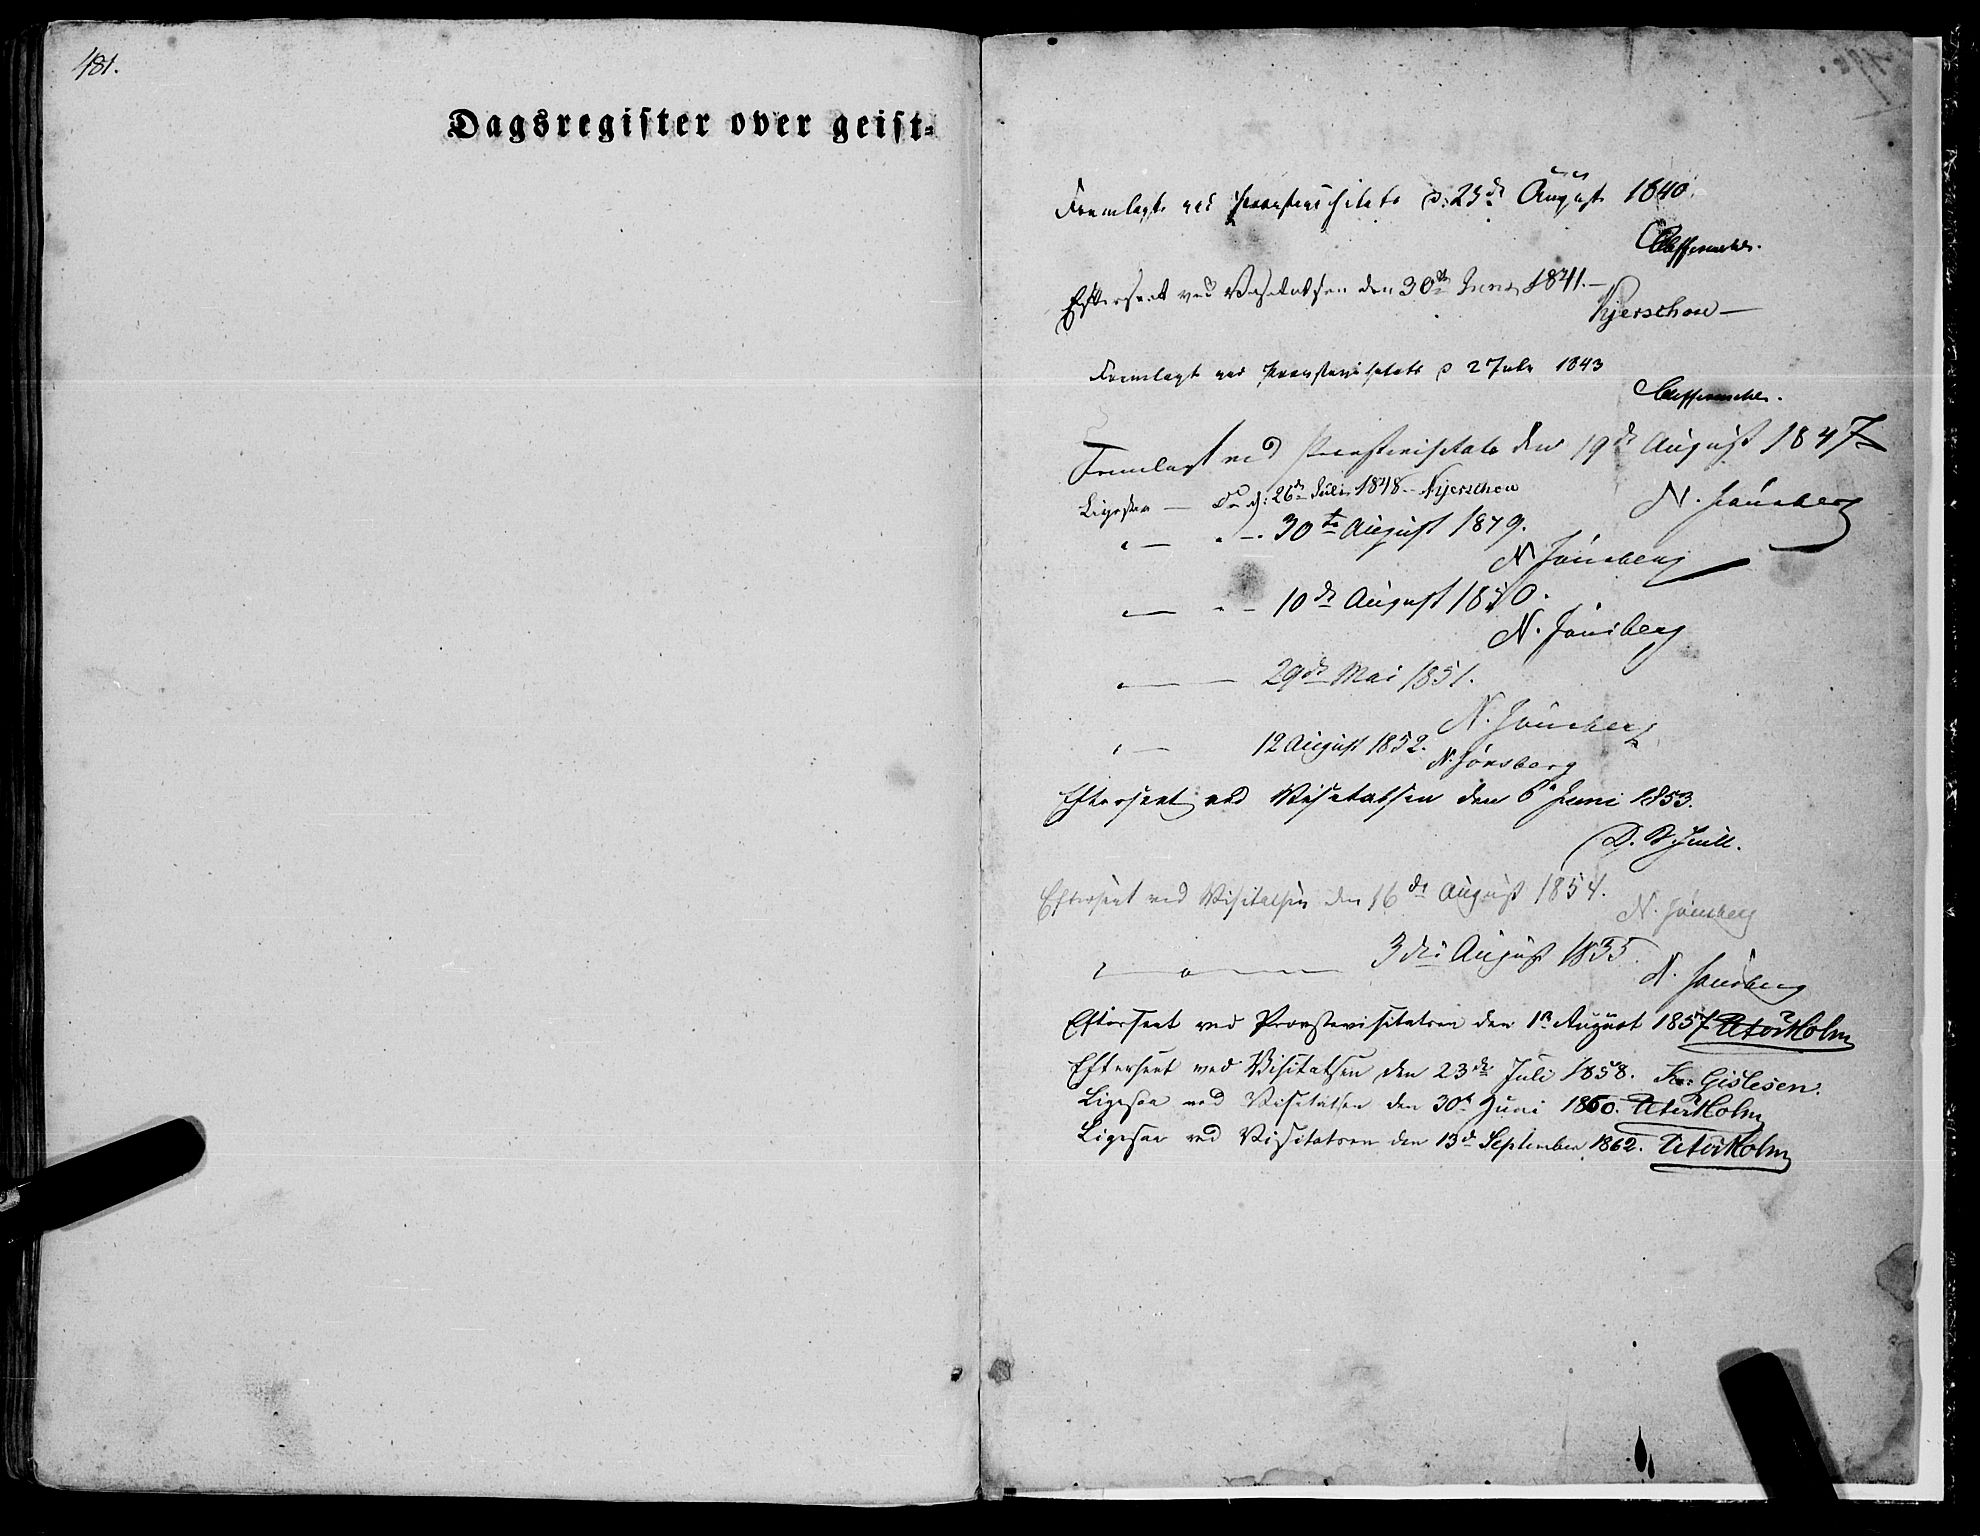 481.
Dagsregister over geist-
Fremlagt ved Provstevisitats d: 25de August 1840.
Efterseet ved Visitatsen den 30te Juni 1841.
Kjerschow
Fremlagt ved Provstevisitats d 2 July 1843
Fremlagt ved Provstevisitats den 19de August 1847
N. Jönsberg
Ligesaa — d: 26de Juli 1848 - Kjerschow
" — " — 30te August 1849.
N. Jönsberg
" — " — 10de August 1850.
N. Jönsberg
" — 29de Mai 1851.
N. Jönsberg
" — 12 August 1852.
N. Jönsberg
Efterseet ved Visitatsen den 6te Juni 1853.
Efterseet ved Visitatsen den 16de August 1854.
N. Jönsberg
3die August 1855.
N. Jönsberg
Efterseet ved Provstevisitatsen den 1ste August 1857 Holm
Efterseet ved Visitatsen den 23de Juli 1858. Kn: Gislesen.
Ligesaa ved Visitatsen den 30te Juni 1860. Holm
Ligesaa ved Visitatsen den 13de September 1862. Holm